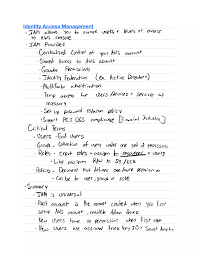 Identity Access Management
- IAM allows you to manage users + levels of access
to AWS console
- IAM Provides
- Centralized Control of your AWS account
- Shared Access to AWS account
- Granular Permissions
- Identity Federation (ex. Active Directory)
- Multifactor authentication
- Temp access for users/devices + services as
necessary
- Set up password rotation policy
- Support PCI DSS compliance [Financial Industry]
Critical Terms
- Users - End Users
- Groups - Collection of users under one set of permissions
- Roles - create roles + assign to resources + users
- Like position
- Policies - Document that defines one/more permissions
- Can be to user, group or role
- Summary
- IAM is universal
- Root account is the account created when you first
setup AWS account, complete Admin Access
- New Users have no permissions when first
- New Users are assigned Access Key ID + Secret Access